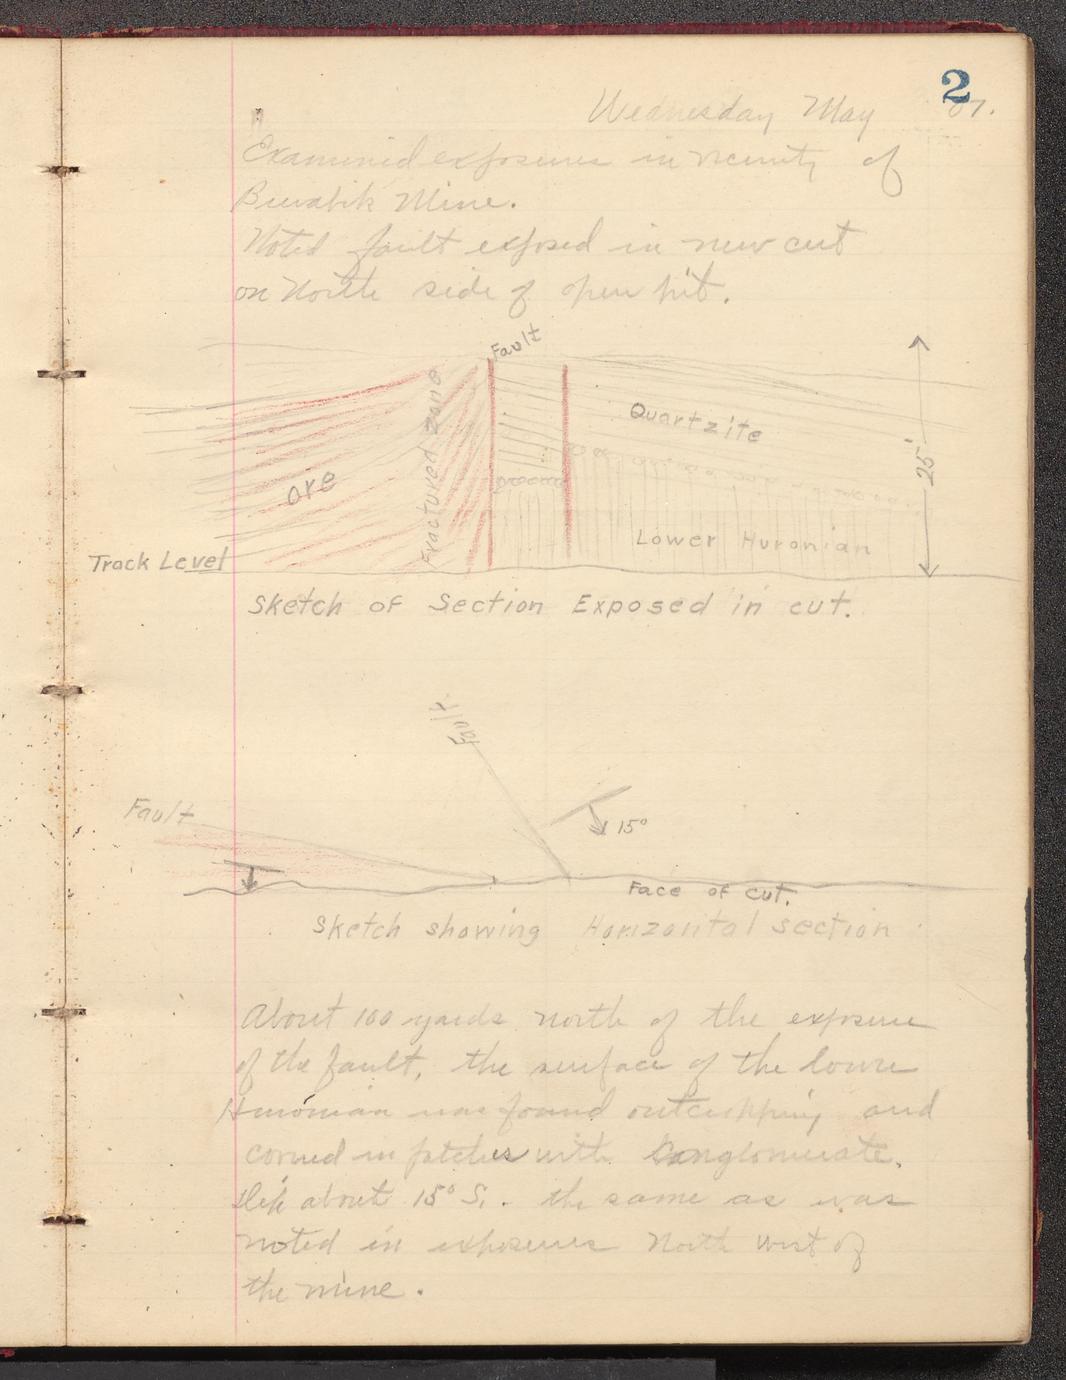 2
Wednesday May 07.
Examined exposures in vicinity of
Biwabik Mine.
Noted fault exposed in new cut
on North side of open pit.
Fault
Quartzite
25'
Fractured Zone
ore
Lower Huronian
Track Level
Sketch of Section Exposed in cut.
Fault
Fault
15°
Face of cut.
Sketch showing Horizontal section
About 100 yards north of the exposure
of the fault, the surface of the lower
Huronian was found outcropping and
covered in patches with Conglomerate.
Dip about 15° S. the same as was
noted in exposures North west of
the mine.